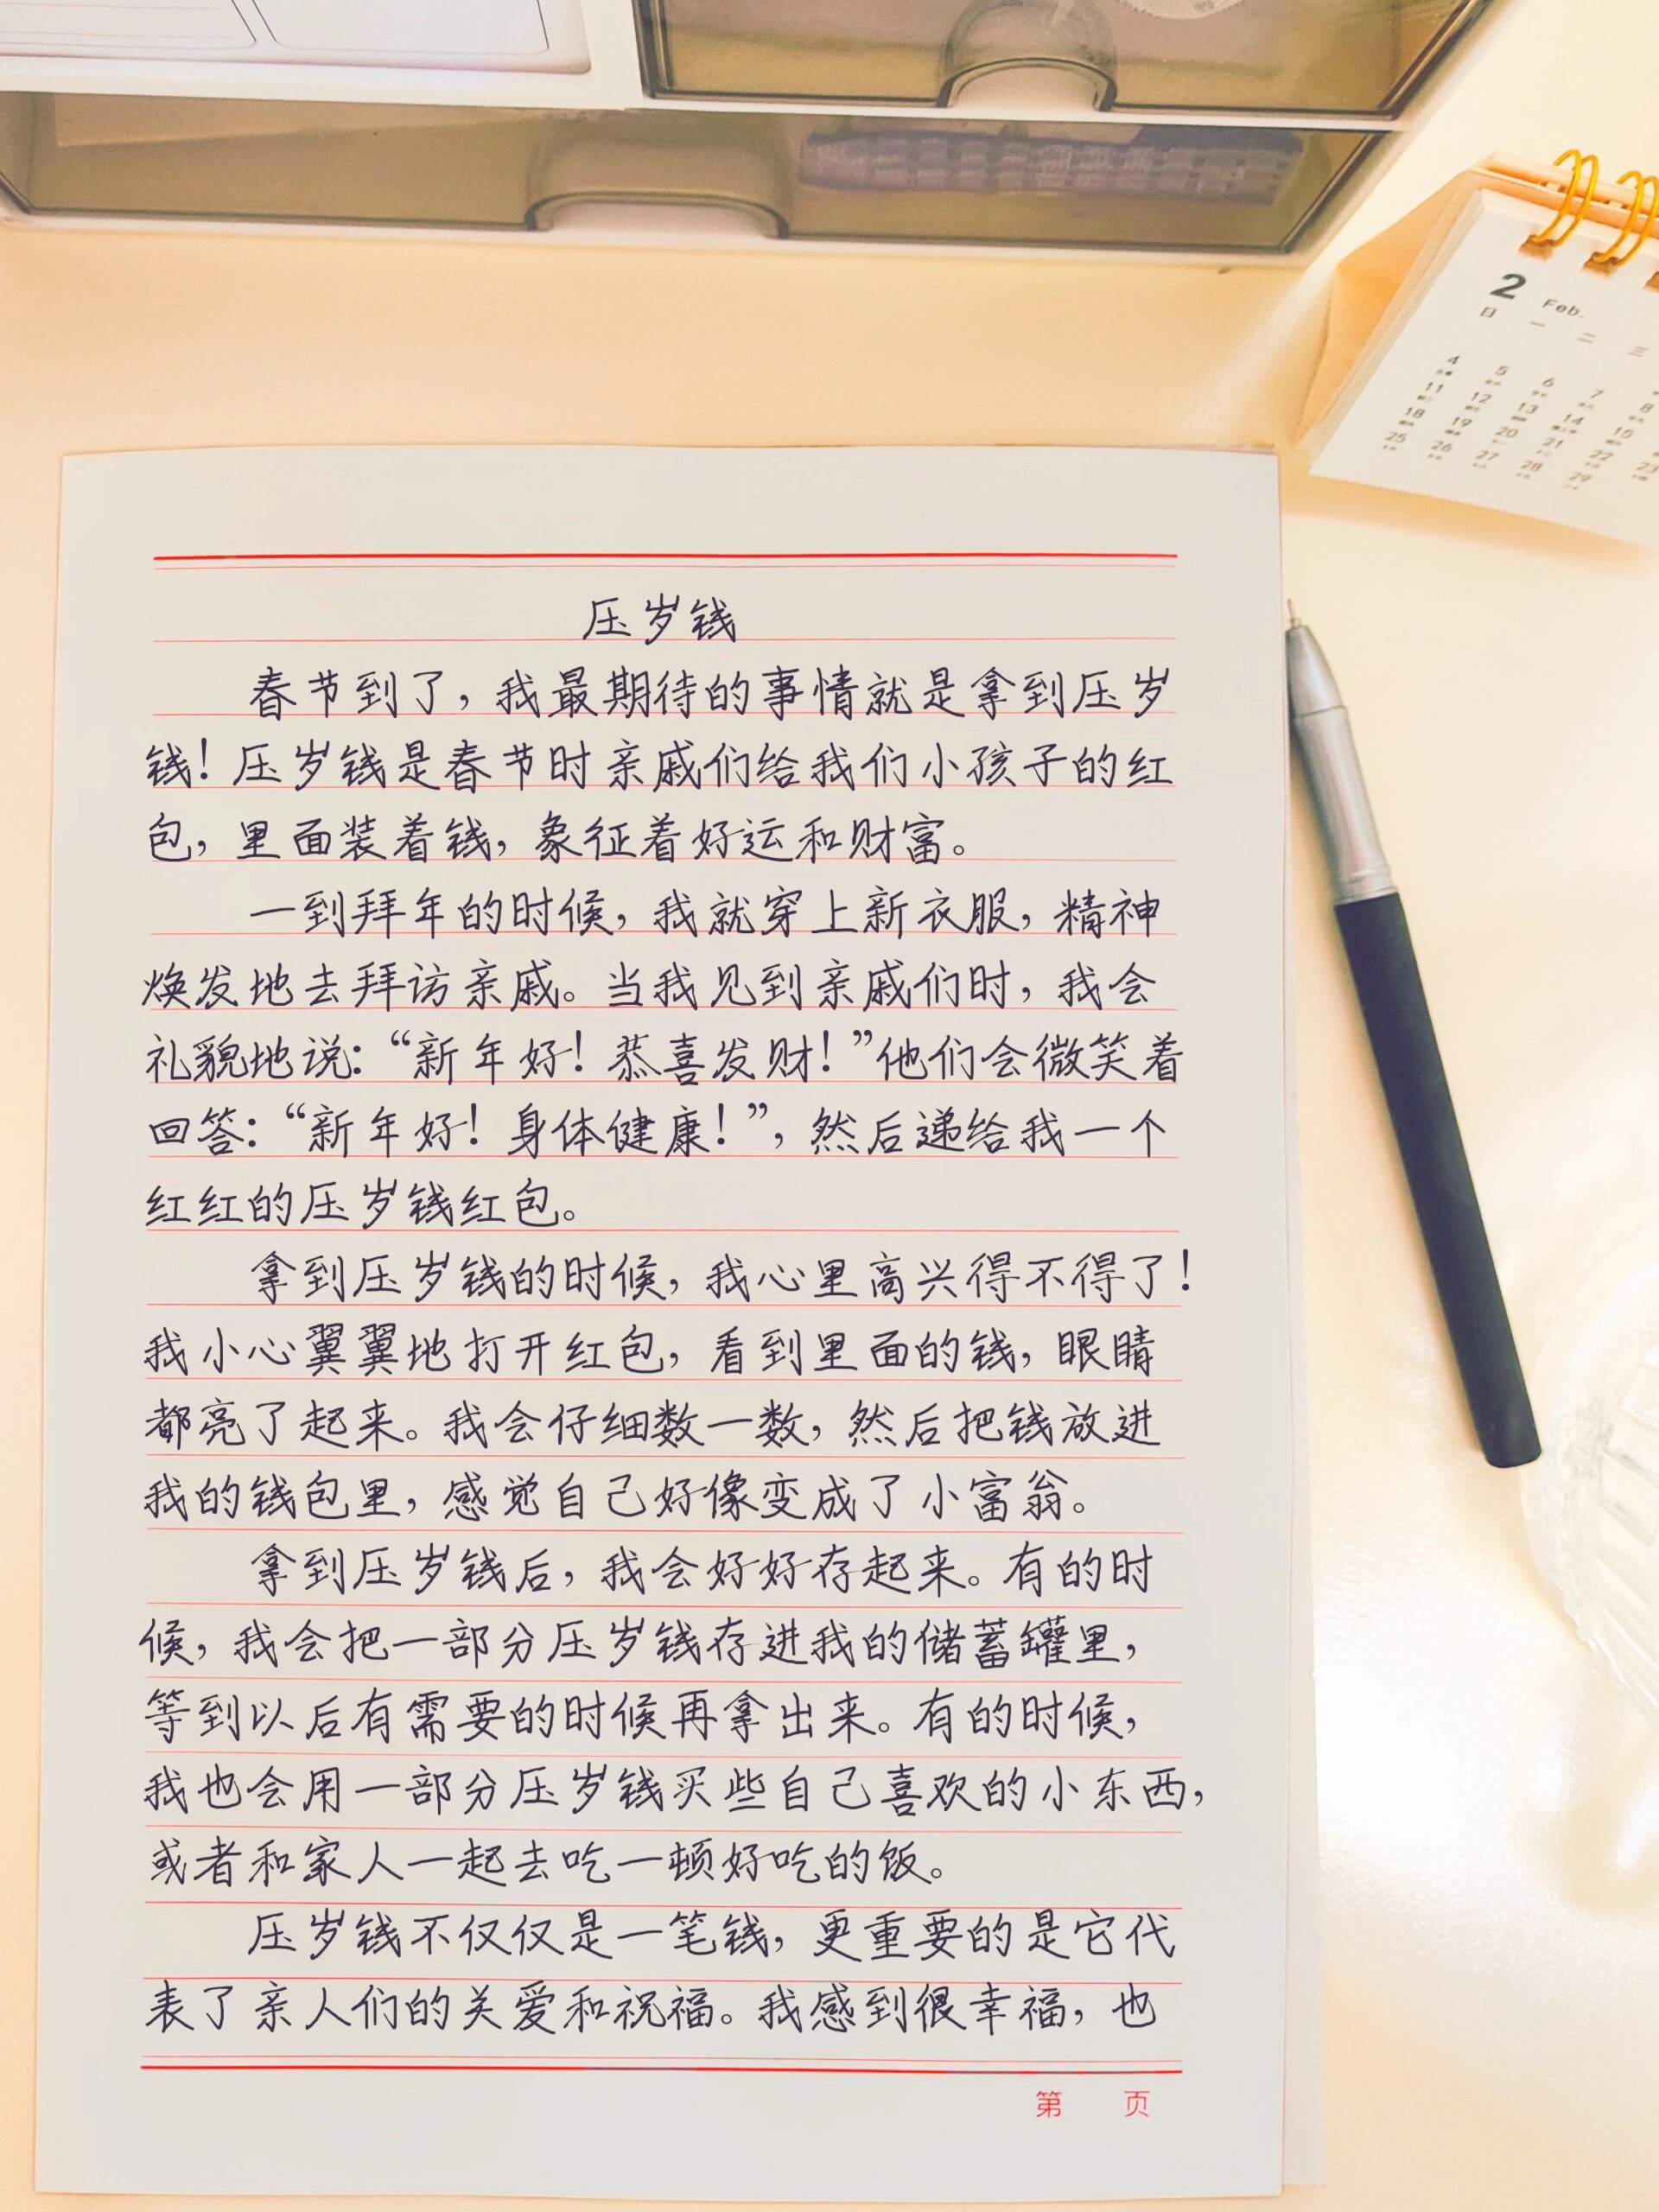 2 Feb.
日 一 二 三
4 5 6 7 8
11 12 13 14 15
18 19 20 21 22 23
25 26 27 28 29
压岁钱
春节到了，我最期待的事情就是拿到压岁
钱！压岁钱是春节时亲戚们给我们小孩子的红
包，里面装着钱，象征着好运和财富。
一到拜年的时候，我就穿上新衣服，精神
焕发地去拜访亲戚。当我见到亲戚们时，我会
礼貌地说：“新年好！恭喜发财！”他们会微笑着
回答：“新年好！身体健康！”，然后递给我一个
红红的压岁钱红包。
拿到压岁钱的时候，我心里高兴得不得了！
我小心翼翼地打开红包，看到里面的钱，眼睛
都亮了起来。我会仔细数一数，然后把钱放进
我的钱包里，感觉自己好像变成了小富翁。
拿到压岁钱后，我会好好存起来。有的时
候，我会把一部分压岁钱存进我的储蓄罐里，
等到以后有需要的时候再拿出来。有的时候，
我也会用一部分压岁钱买些自己喜欢的小东西，
或者和家人一起去吃一顿好吃的饭。
压岁钱不仅仅是一笔钱，更重要的是它代
表了亲人们的关爱和祝福。我感到很幸福，也
第 页